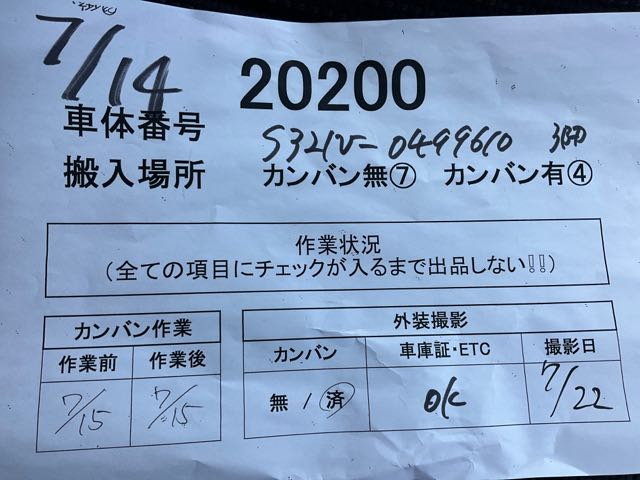 7/14
20200
車体番号 S321V-0499610
搬入場所 カンバン無⑦ カンバン有④
作業状況
(全ての項目にチェックが入るまで出品しない!!)
カンバン作業
作業前 作業後
7/15 7/15
外装撮影
カンバン 車庫証・ETC 撮影日
無 / 済 OK 7/22